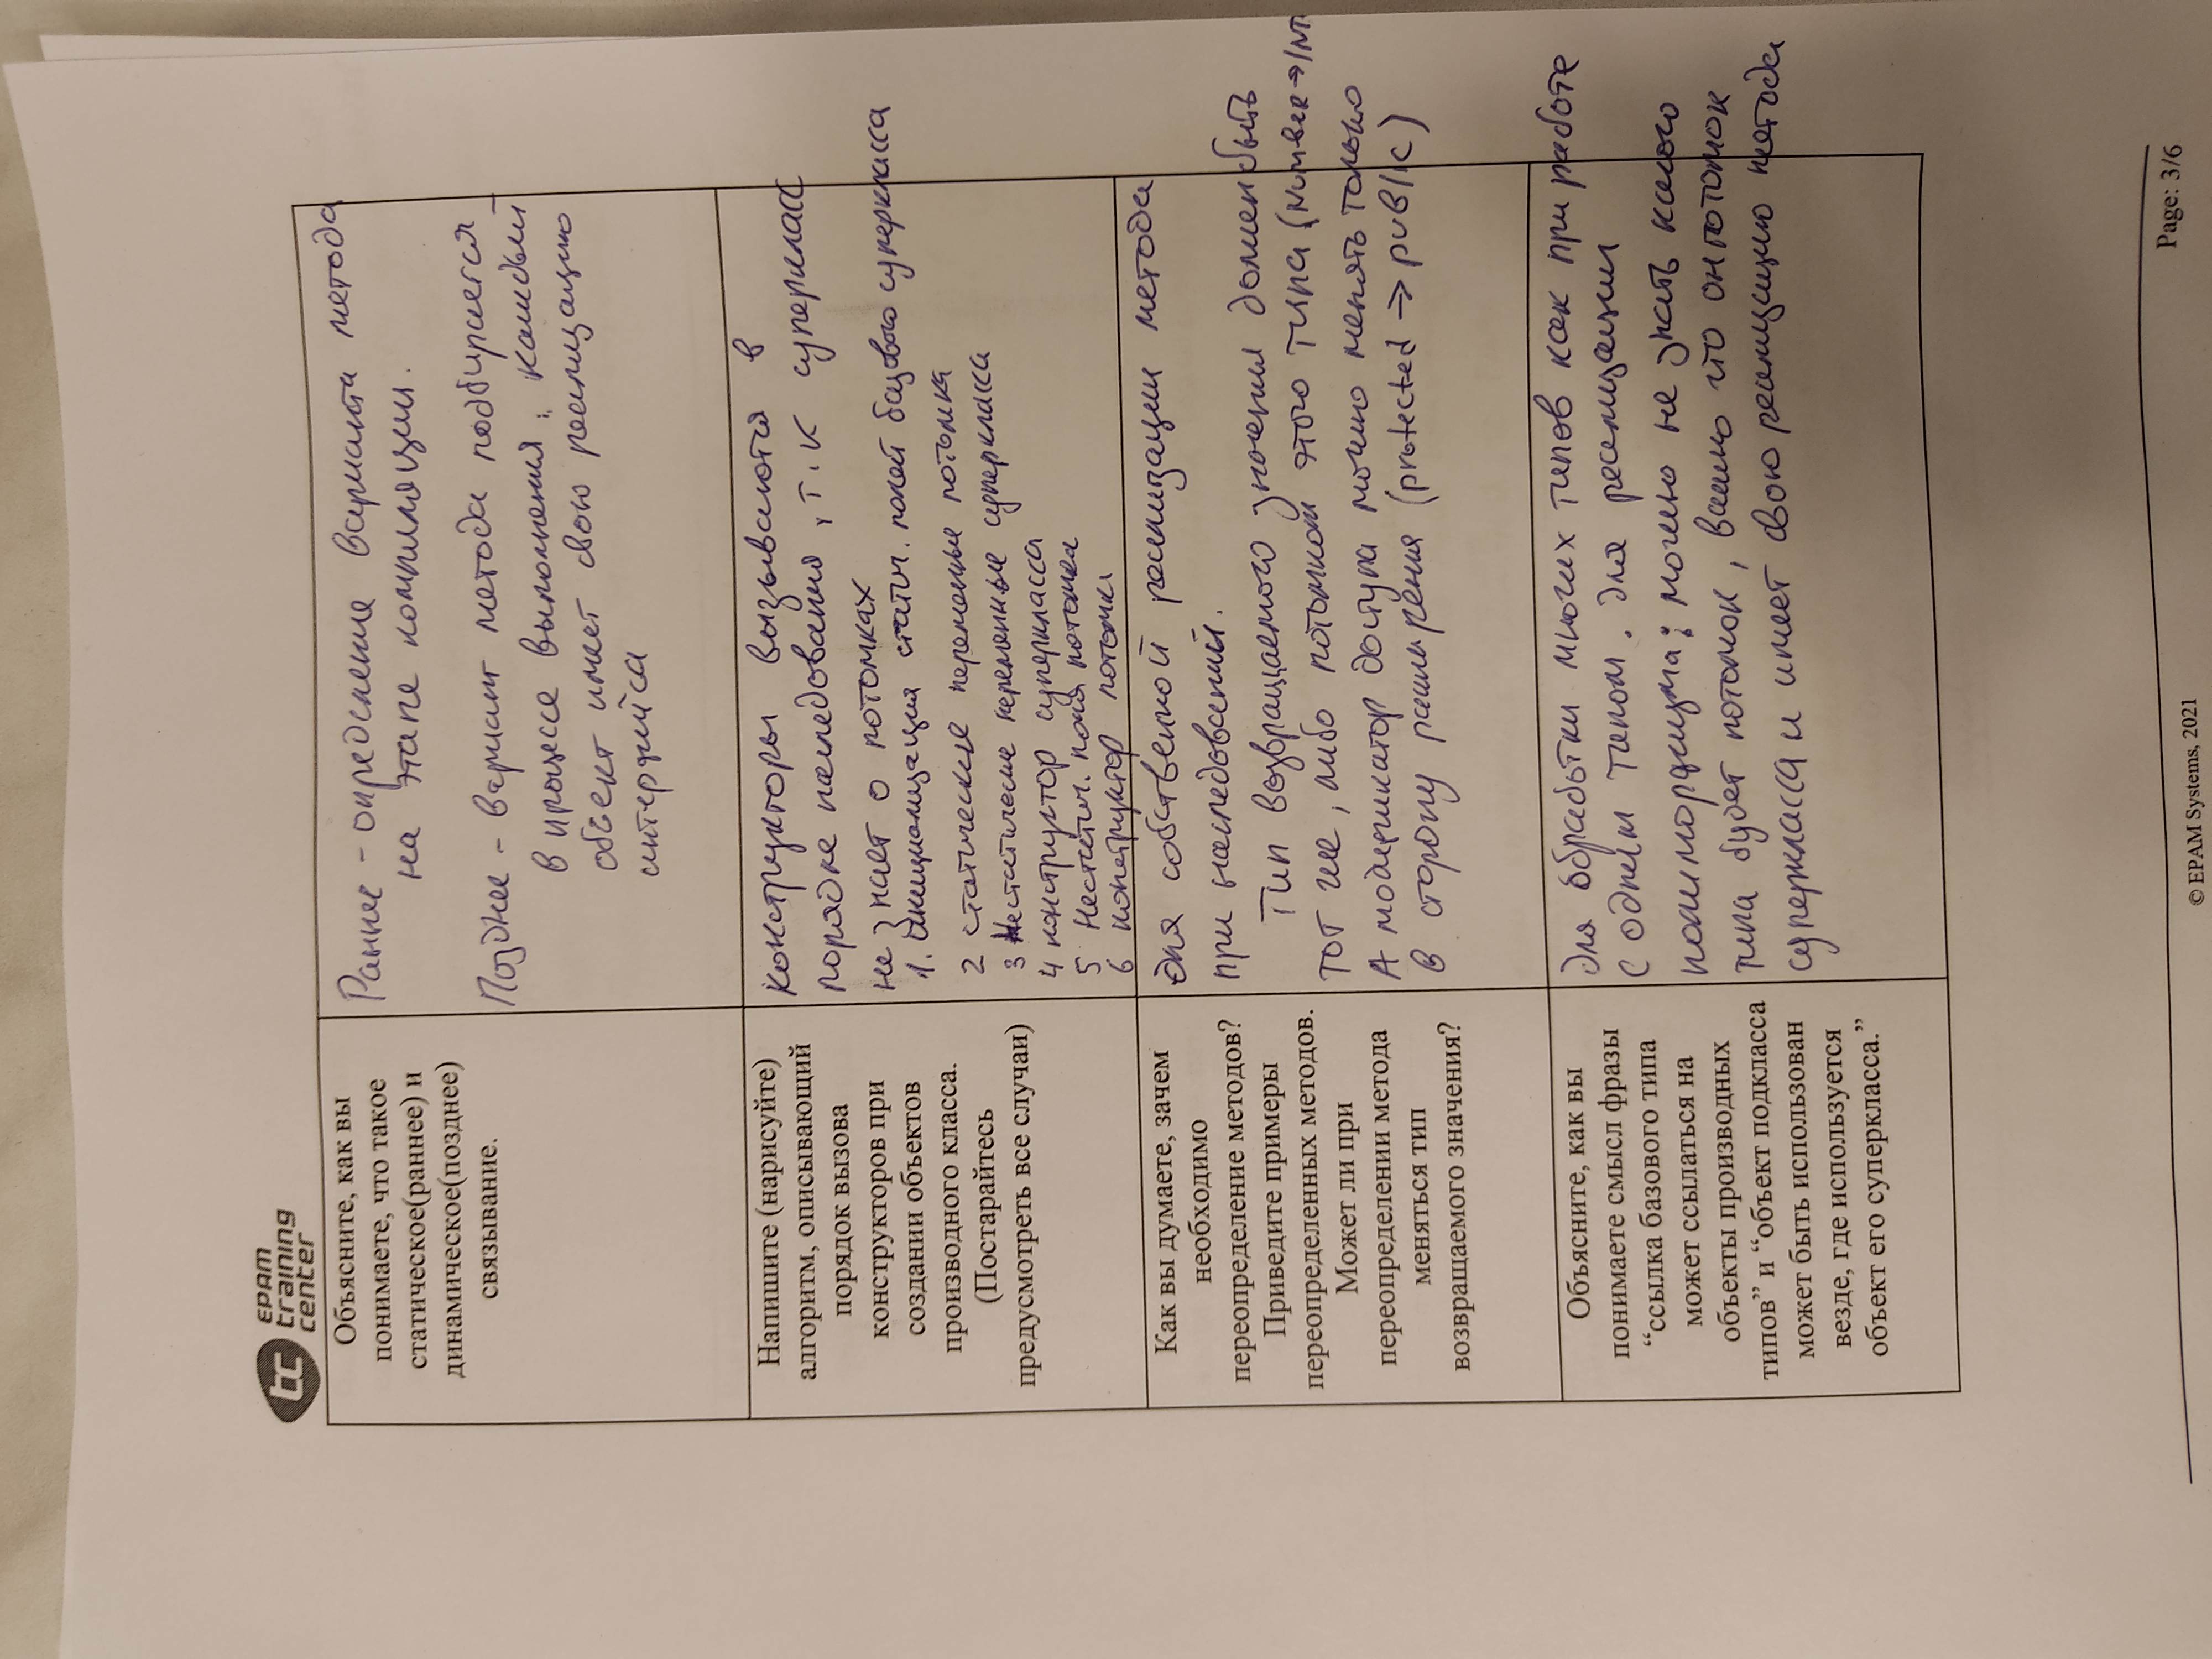 EPAM
training
center
Объясните, как вы
понимаете, что такое
статическое(раннее) и
динамическое(позднее)
связывание.
Раннее - определение варианта метода
на этапе компиляции.
Позднее - вариант метода подбирается
в процессе выполнения, каждый
объект имеет свою реализацию
интерфейса
Напишите (нарисуйте)
алгоритм, описывающий
порядок вызова
конструкторов при
создании объектов
производного класса.
(Постарайтесь
предусмотреть все случаи)
конструкторы вызываются в
порядке наследования, т.к суперкласс
не знает о потомках
1. Инициализация статич. полей базового суперкласса
2 статические переменные потомка
3 Нестатические переменные суперкласса
4 конструктор суперкласса
5 Нестатич. поля потомка
6 конструктор потомка
Как вы думаете, зачем
необходимо
переопределение методов?
Приведите примеры
переопределенных методов.
Может ли при
переопределении метода
меняться тип
возвращаемого значения?
для собственной реализации метода
при наследований.
Тип возвращаемого значения должен быть
тот же, либо потомком этого типа (Number → INT
А модификатор доступа можно менять только
в сторону расширения (protected → public)
Объясните, как вы
понимаете смысл фразы
“ссылка базового типа
может ссылаться на
объекты производных
типов” и “объект подкласса
может быть использован
везде, где используется
объект его суперкласса.”
Для обработки многих типов как при работе
с одним типом. Для реализации
полиморфизма: можно не знать какого
типа будет потомок, важно что он потомок
суперкласса и имеет свою реализацию метода
© EPAM Systems, 2021
Page: 3/6